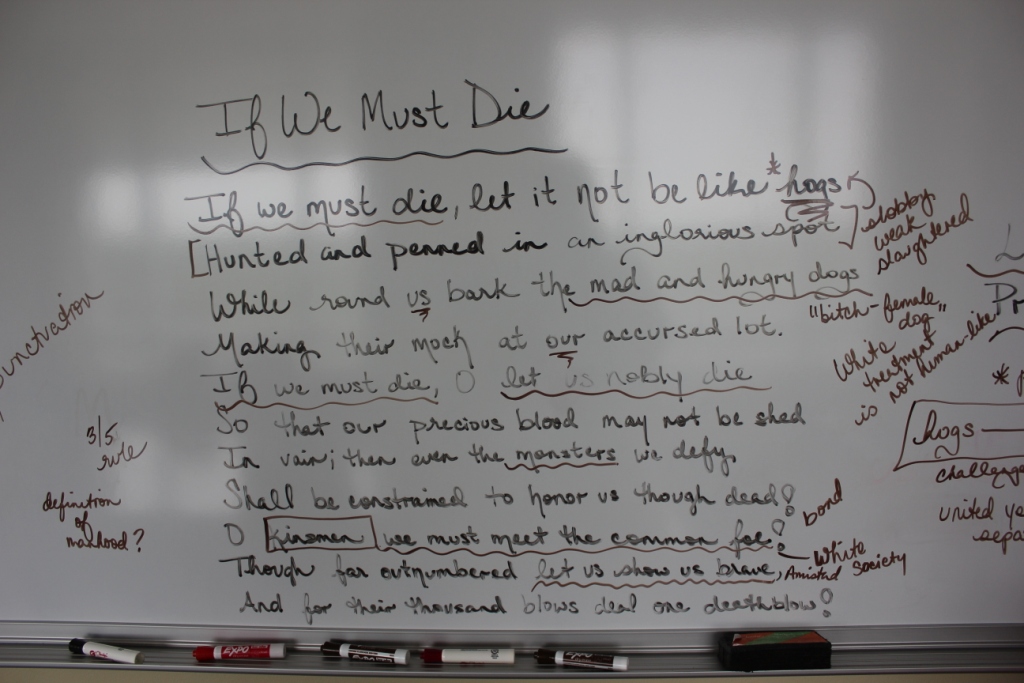 If We Must Die
If we must die, let it not be like *hogs
[Hunted and penned in an inglorious spot
While round us bark the mad and hungry dogs
Making their mock at our accursed lot.
If we must die, O let us nobly die
So that our precious blood may not be shed
In vain; then even the monsters we defy
Shall be constrained to honor us though dead!
O kinsmen we must meet the common foe!
Though far outnumbered let us show us brave,
And for their thousand blows deal one deathblow!
slobby
weak
slaughtered
"bitch-female
dog"
White
treatment
is not human-like
bond
White
Amistad Society
3/5
rule
definition
of
manhood?
hogs
united
EXPO